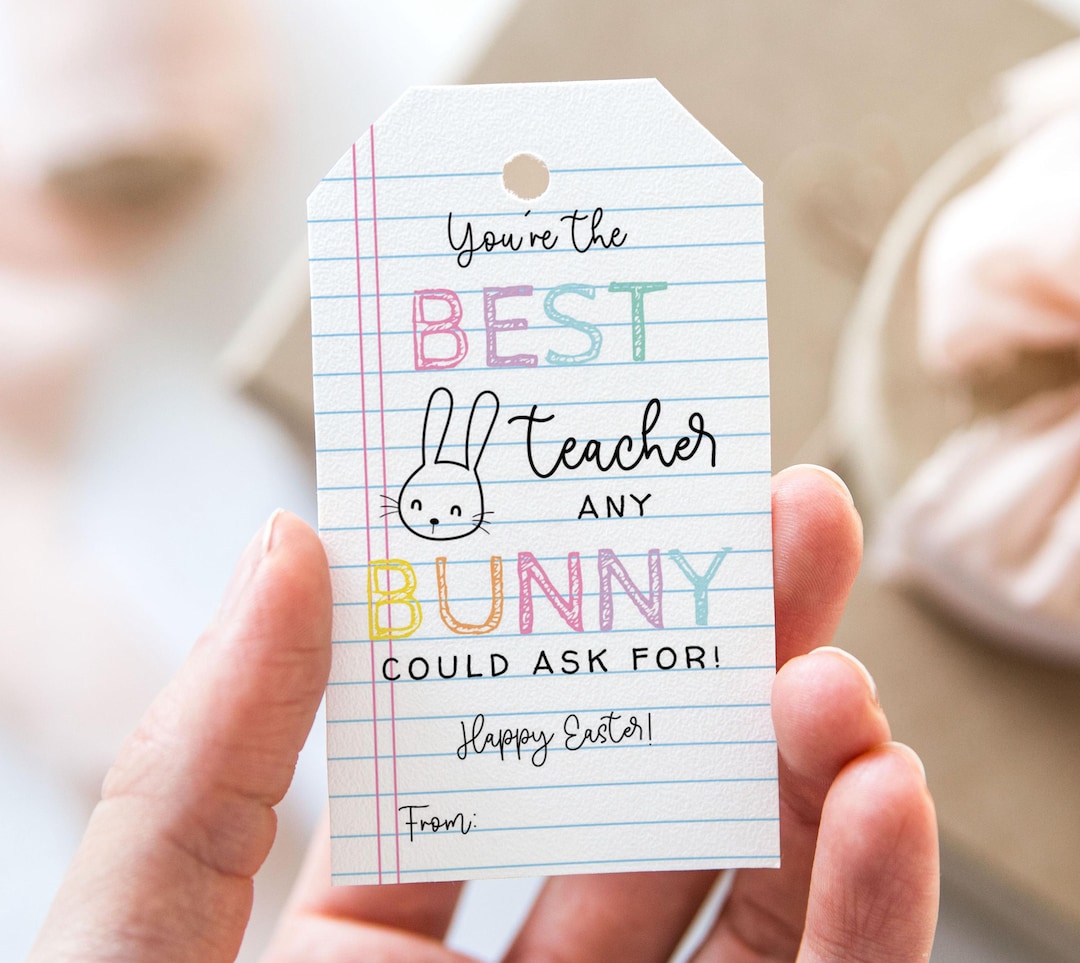 You're the
BEST
teacher
ANY
BUNNY
COULD ASK FOR!
Happy Easter!
From: